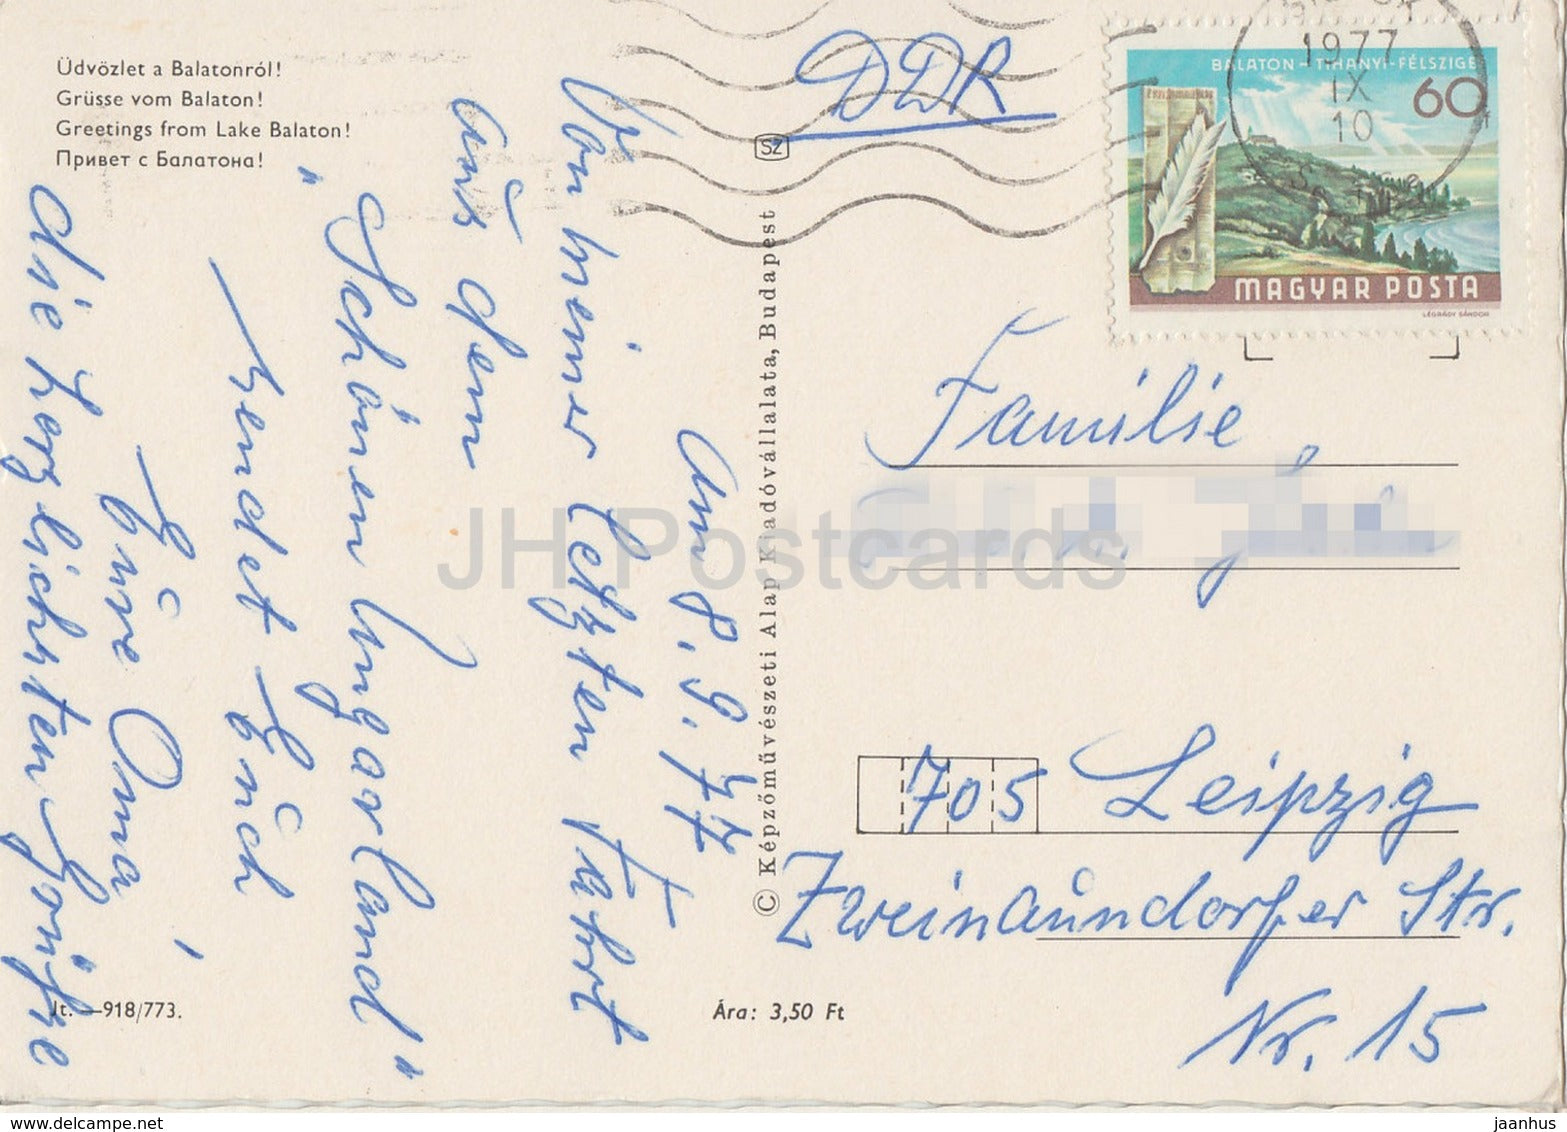 Üdvözlet a Balatonról!
Grüsse vom Balaton!
Greetings from Lake Balaton!
Привет с Балатона!
Am 8.9.77
Von meiner letzten Fahrt
aus dem
"Schönen Ungarland"
sendet Euch
die herzlichsten Grüße
Eure Oma
Jt. —918/773.
SZ
© Képzőművészeti Alap Kiadóvállalata, Budapest
Ára: 3,50 Ft
DDR
1977
IX
10
BALATON – TIHANYI-FÉLSZIGET
60f
MAGYAR POSTA
LÉGRÁDY SÁNDOR
Familie
705 Leipzig
Zweinaundorfer Str.
Nr. 15
JH Postcards
www.delcampe.net
jaanhus